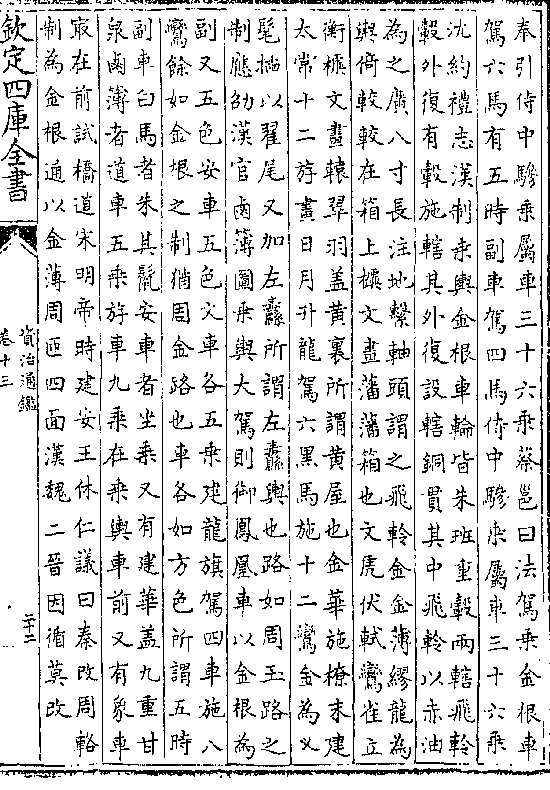 奉引侍中驂乗屬車三十六乗蔡邕曰法駕乗金根車
駕六馬有五時副車駕四馬侍中驂乗屬車三十六乗
沈約禮志漢制乗輿金根車輪皆朱班重轂兩轄飛軨
轂外復有轂施轄其外復設轄銅貫其中飛軨以赤油
為之廣八寸長注地繫軸頭謂之飛軨金金薄繆龍為
輿倚較較在箱上㯹文畫藩藩箱也文虎伏軾鸞雀立
衡㯹文畫轅翠羽盖黄裏所謂黄屋也金華施橑末建
太常十二斿畫日月升龍駕六黒馬施十二鸞金為㕚
髦插以翟尾又加左纛所謂左纛輿也路如周玉路之
制應劭漢官鹵簿圖乗輿大駕則御鳳凰車以金根為
副又五色安車五色立車各五乗建龍旗駕四車施八
鸞餘如金根之制猶周金路也車各如方色所謂五時
副車白馬者朱其鬛安車者坐乗又有建華盖九重甘
泉鹵簿者道車五乗斿車九乗在乗輿車前又有象車
㝡在前試橋道宋明帝時建安王休仁議曰秦改周輅
制為金根通以金薄周匝四面漢魏二晉因循莫改
欽定四庫全書
資治通鑑
卷十三
二十二